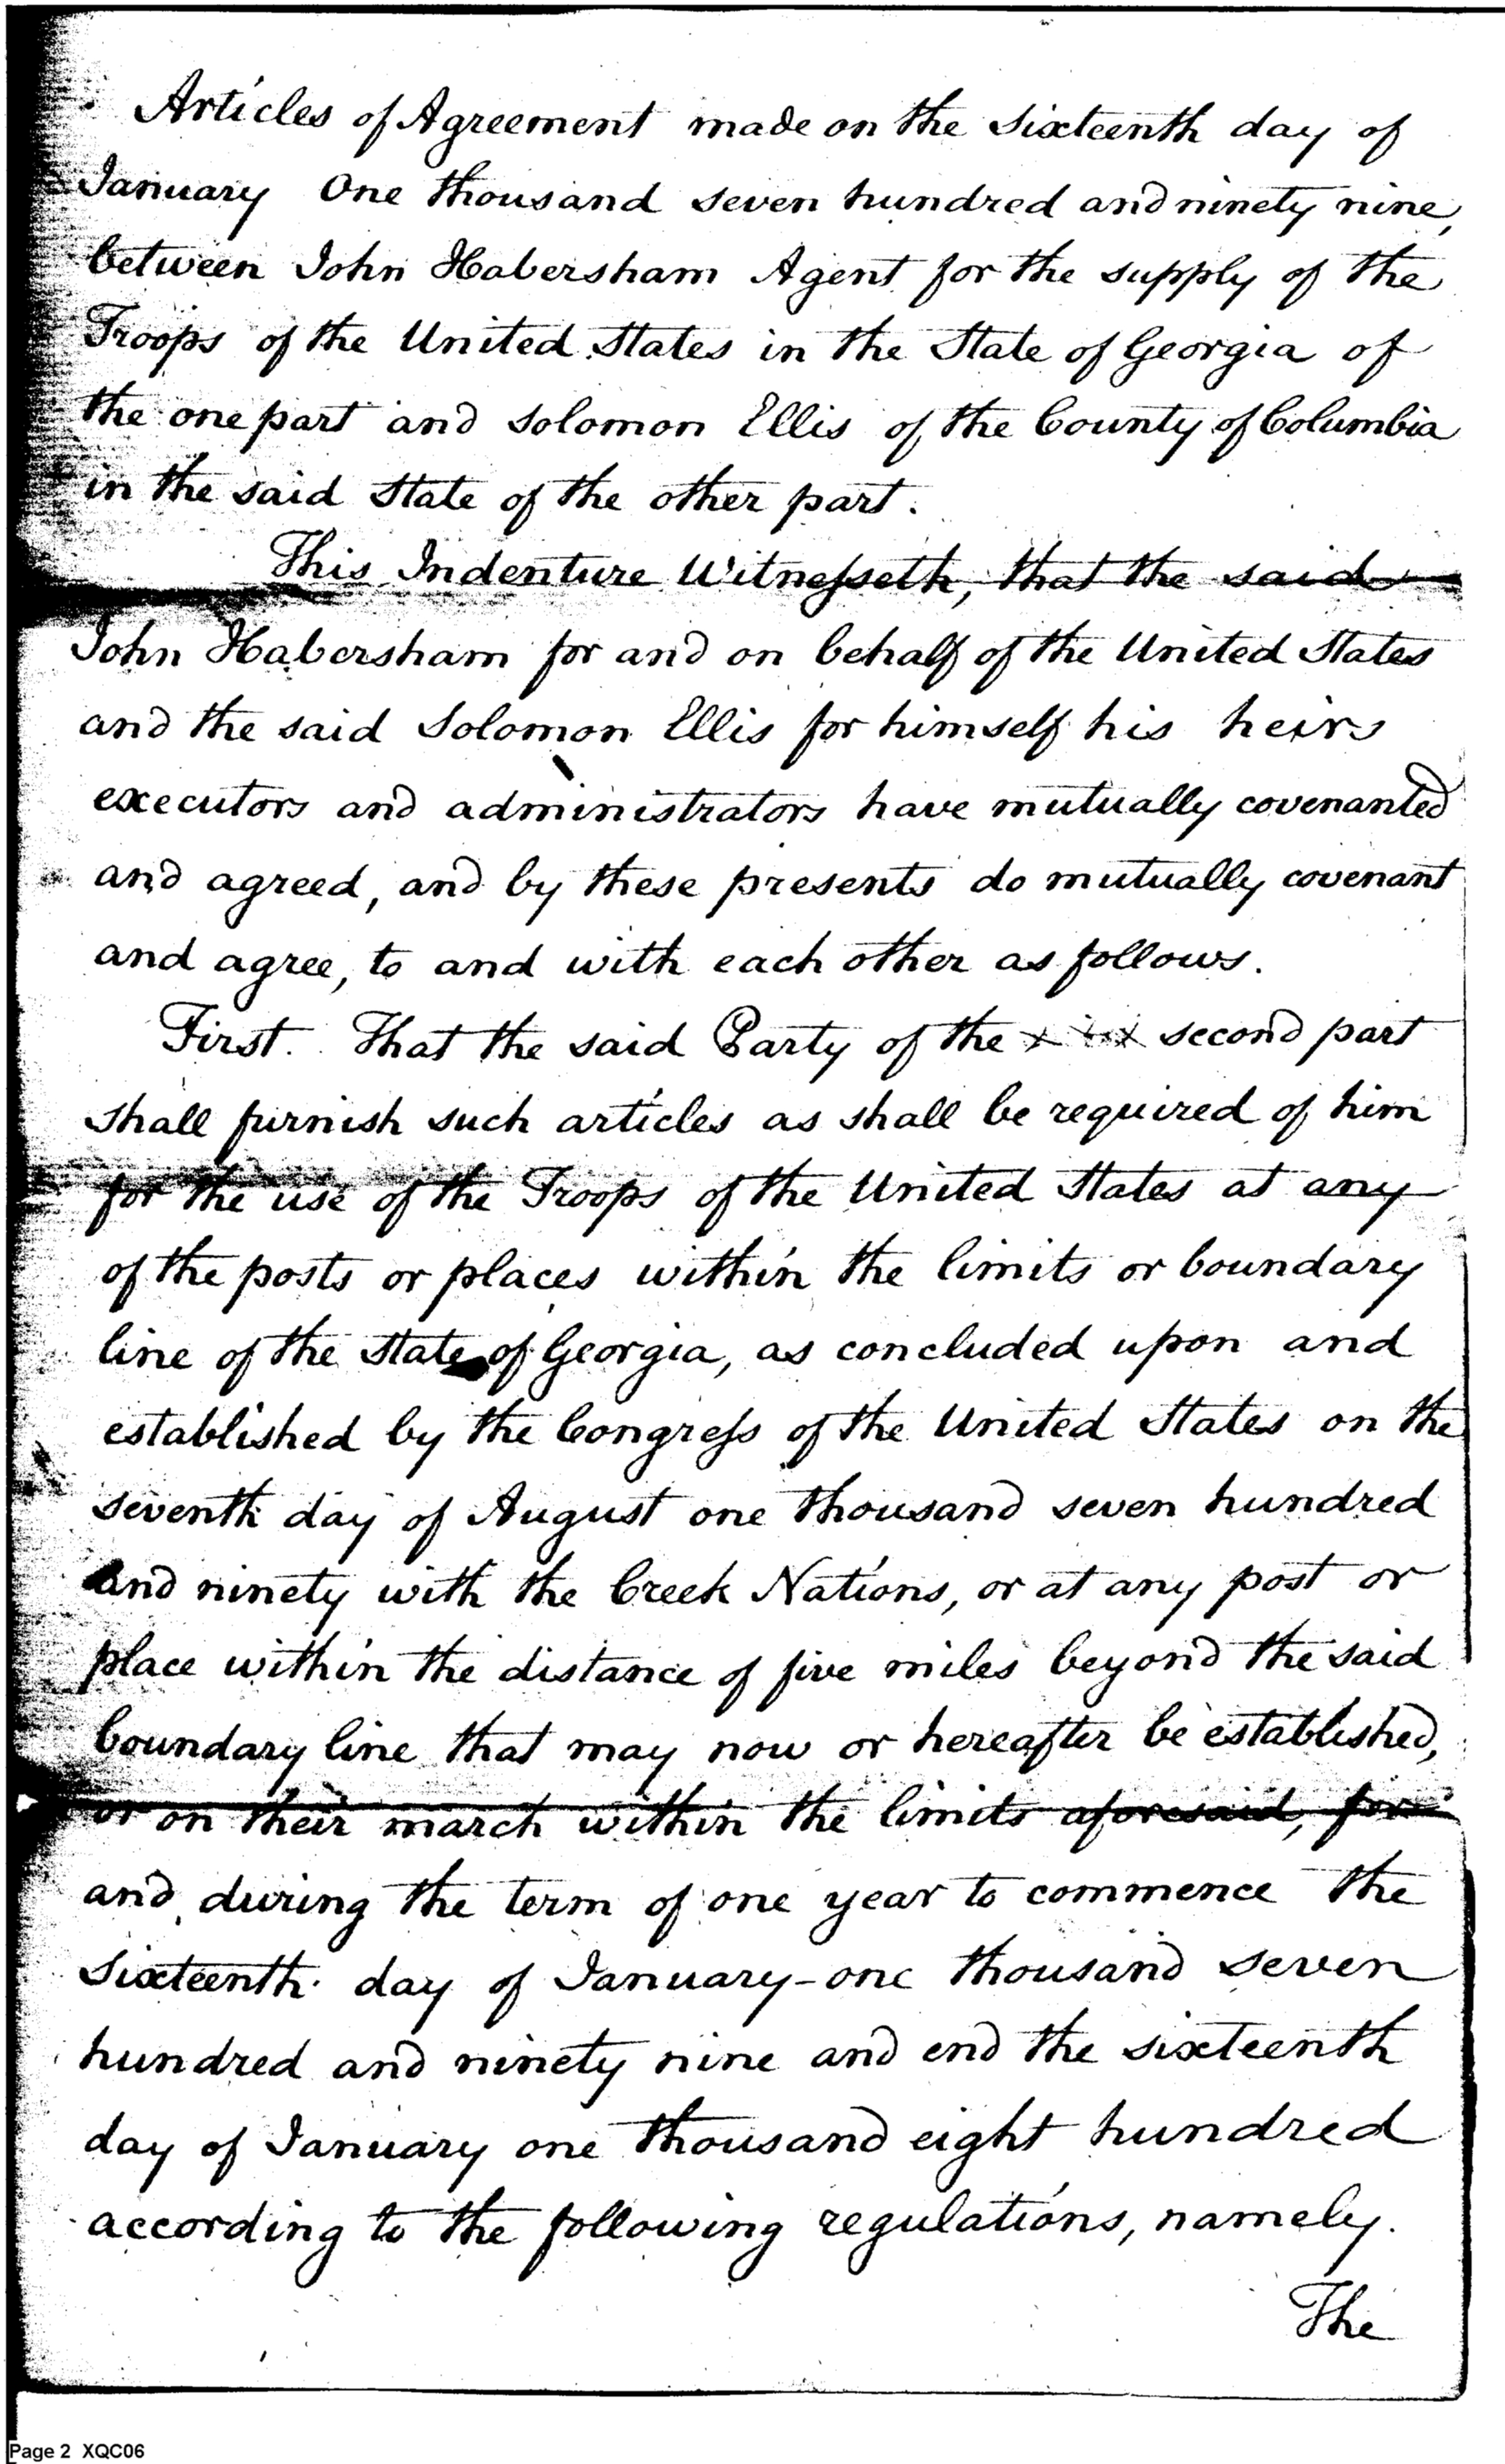 Articles of Agreement made on the Sixteenth day of
January One thousand seven hundred and ninety nine,
between John Habersham Agent for the supply of the
Troops of the United States in the State of Georgia of
the one part and Solomon Ellis of the County of Columbia
in the said State of the other part.
This Indenture Witnesseth, that the said
John Habersham for and on behalf of the United States
and the said Solomon Ellis for himself his heirs
executors and administrators have mutually covenanted
and agreed, and by these presents do mutually covenant
and agree, to and with each other as follows.
First. That the said Party of the second part
shall furnish such articles as shall be required of him
for the use of the Troops of the United States at any
of the posts or places within the limits or boundary
line of the State of Georgia, as concluded upon and
established by the Congress of the United States on the
seventh day of August one thousand seven hundred
and ninety with the Creek Nations, or at any post or
place within the distance of five miles beyond the said
boundary line that may now or hereafter be established,
or on their march within the limits aforesaid, for
and during the term of one year to commence the
Sixteenth day of January - one thousand seven
hundred and ninety nine and end the sixteenth
day of January one thousand eight hundred
according to the following regulations, namely.
The
Page 2 XQC06